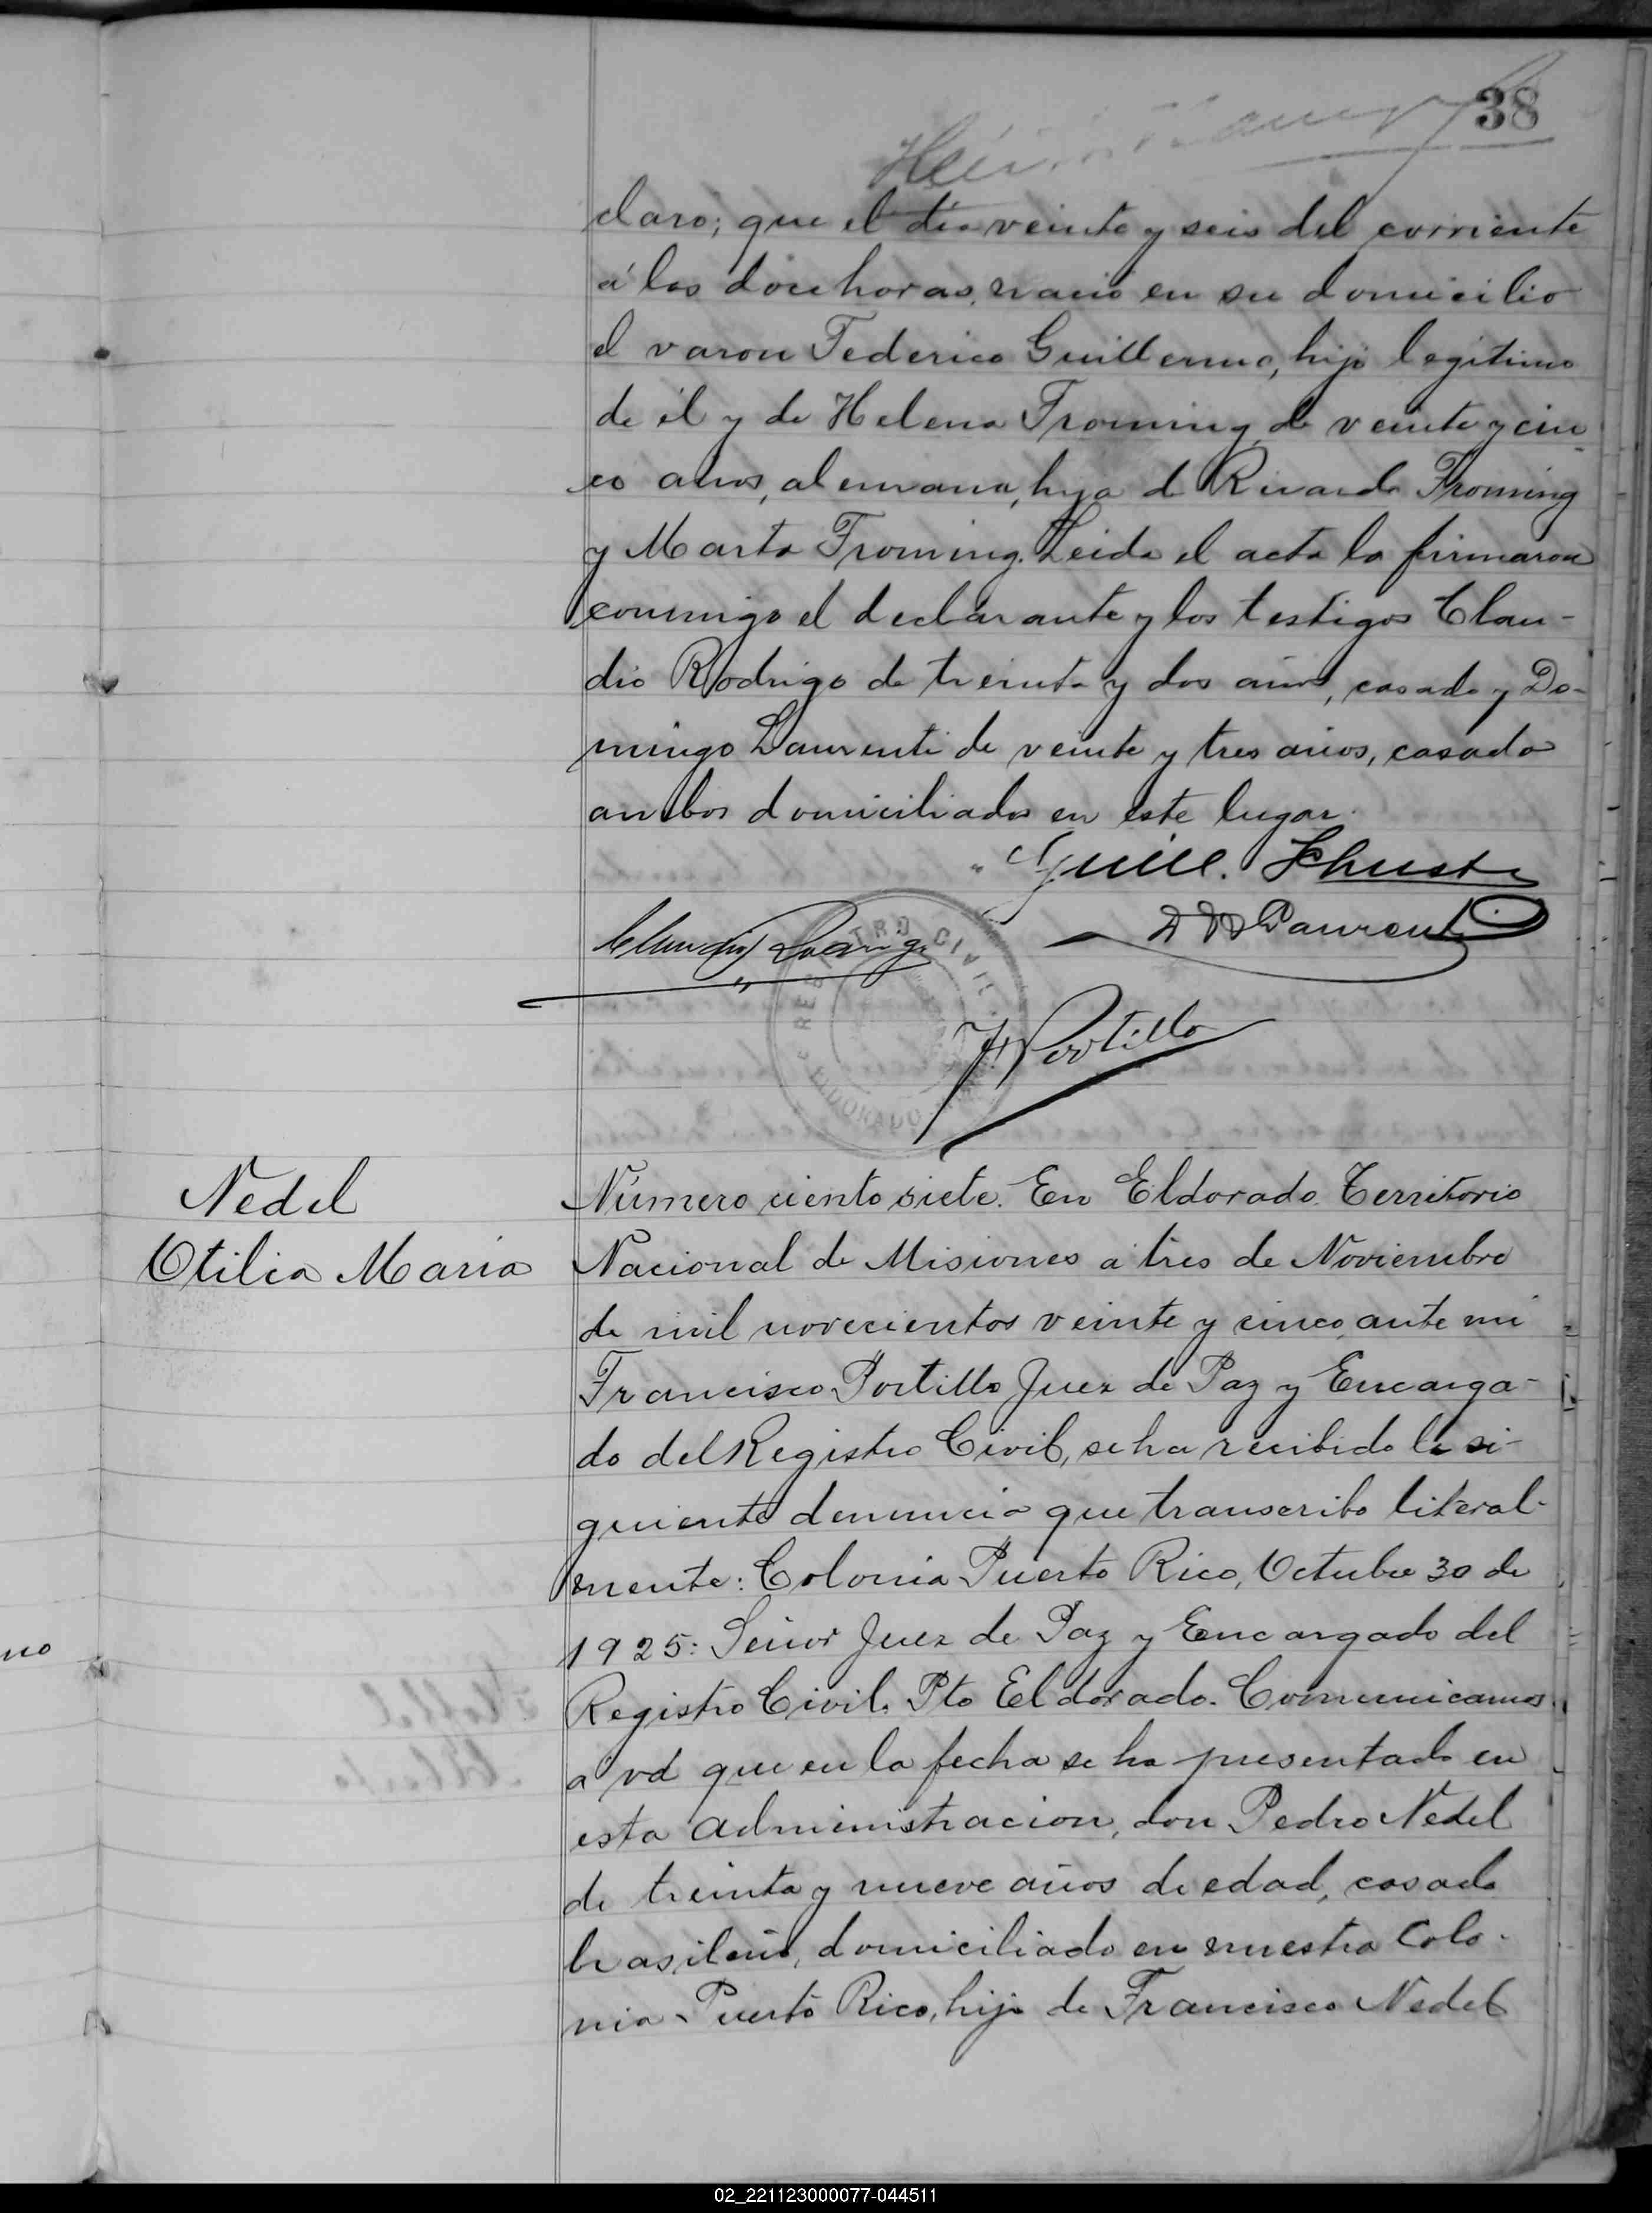 38
claro; que el dia veinte y seis del corriente
á las doce horas, nació en su domicilio
el varon Federico Guillermo, hijo legitimo
de él y de Helena Froming, de veinte y cin
co años, alemana, hija de Ricardo Froming
y Marta Froming. Leida el acta la firmaron
conmigo el declarante y los testigos Clau-
dio Rodrigo de treinta y dos años, casado y Do-
mingo Laurenti de veinte y tres años, casado
ambos domiciliados en este lugar.
Guill. Schust
D Laurenti
REGISTRO CIVIL
ELDORADO
F. Portillo
Nedel
Otilia Maria
Número ciento siete. En Eldorado Territorio
Nacional de Misiones a tres de Noviembre
de mil novecientos veinte y cinco, ante mi
Francisco Portillo Juez de Paz y Encarga-
do del Registro Civil, se ha recibido la si-
guiente denuncia que transcribo literal-
mente: Colonia Puerto Rico, Octubre 30 de
1925: Señor Juez de Paz y Encargado del
Registro Civil. Pto Eldorado. Comunicamos
a vd que en la fecha se ha presentado en
esta administracion, don Pedro Nedel
de treinta y nueve años de edad, casado
brasileño, domiciliado en nuestra Colo-
nia Puerto Rico, hijo de Francisco Nedel
no
02_221123000077-044511